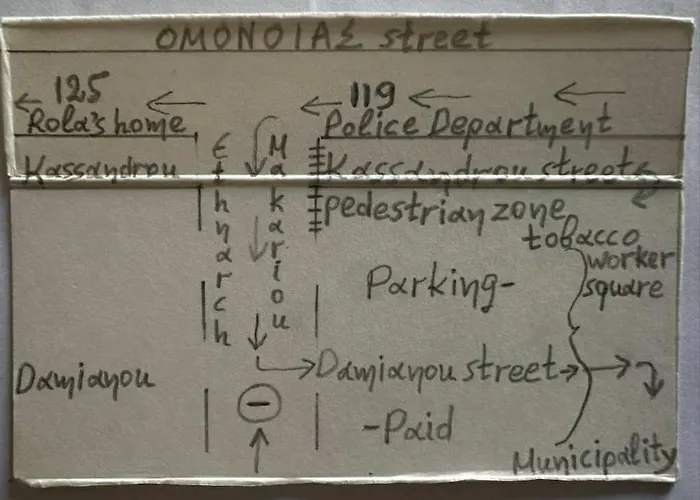 OMONOIAΣ street
125
119
Rola's home
Police Department
Kassandrou
Ethnarch
Makariou
Kassandrou street
pedestrian zone
tobacco
worker
square
Parking-
Damianou
Damianou street
-Paid
Municipality